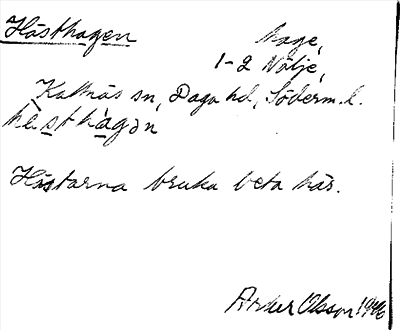 Hästhagen
hage,
1-2 Nälje,
Kattnäs sn, Daga hd, Söderm. l.
hèsthàgən
Hästarna bruka beta här.
Olsson 1946